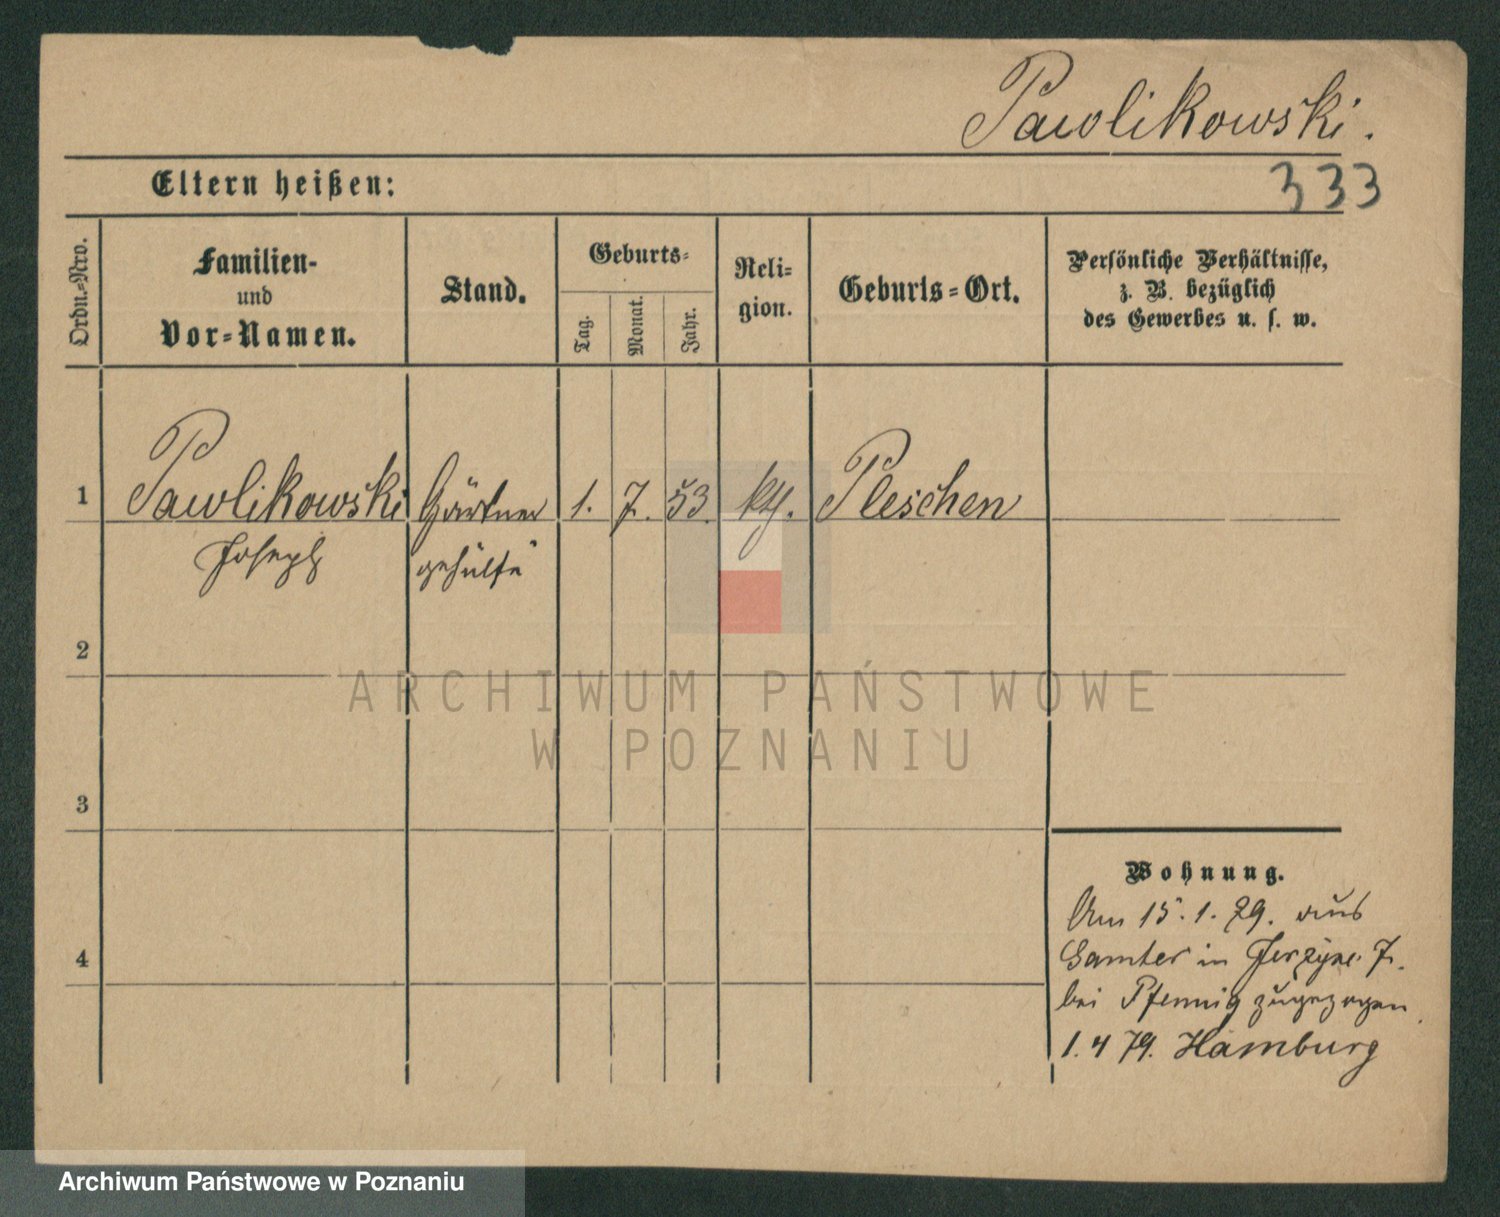 Pawlikowski.
Eltern heißen:
333
Ordn.=Nro.
Familien-
und
Vor=Namen.
Stand.
Geburts=
Tag.
Monat.
Jahr.
Reli=
gion.
Geburts=Ort.
Persönliche Verhältnisse,
z. B. bezüglich
des Gewerbes u. s. w.
1
Pawlikowski
Joseph
Gärtner
gehülfe
1.
7.
53.
kth.
Pleschen
2
ARCHIWUM PAŃSTWOWE
W POZNANIU
3
4
Wohnung.
Am 15.1.79. aus
Samter in 7.
bei Pfennig zugezogen
1.4 79. Hamburg
Archiwum Państwowe w Poznaniu